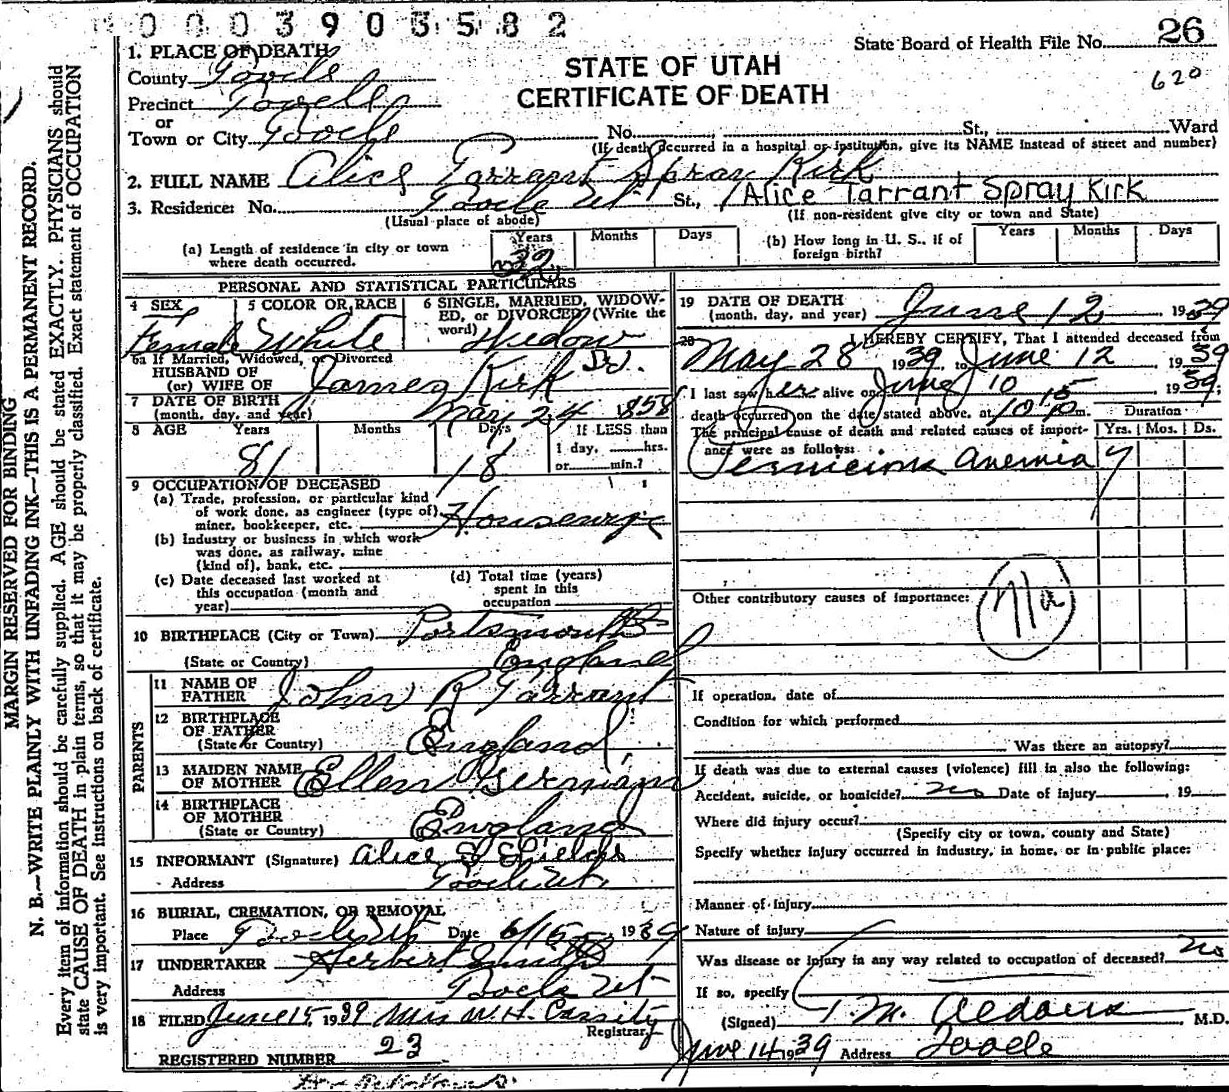 0003903582
State Board of Health File No. 26
620
STATE OF UTAH
CERTIFICATE OF DEATH
1. PLACE OF DEATH
County Tooele
Precinct Tooele
or
Town or City Tooele No. St., Ward
(If death occurred in a hospital or institution, give its NAME instead of street and number)
2. FULL NAME Alice Tarrant Spray Kirk
Alice Tarrant Spray Kirk
3. Residence: No. Tooele Ut St.,
(Usual place of abode) (If non-resident give city or town and State)
(a) Length of residence in city or town where death occurred. Years Months Days
(b) How long in U. S., if of foreign birth? Years Months Days
PERSONAL AND STATISTICAL PARTICULARS
4 SEX Female
5 COLOR OR RACE White
6 SINGLE, MARRIED, WIDOWED, or DIVORCED (Write the word) Widow
6a If Married, Widowed, or Divorced
HUSBAND OF
(or) WIFE OF James Kirk
7 DATE OF BIRTH
(month, day, and year) May 24 1858
8 AGE Years 81 Months Days 18
If LESS than 1 day, hrs. or min.?
9 OCCUPATION OF DECEASED
(a) Trade, profession, or particular kind of work done, as engineer (type of) miner, bookkeeper, etc. Housewife
(b) Industry or business in which work was done, as railway, mine (kind of), bank, etc.
(c) Date deceased last worked at this occupation (month and year)
(d) Total time (years) spent in this occupation
10 BIRTHPLACE (City or Town) Portsmouth
(State or Country) England
PARENTS
11 NAME OF FATHER John R Tarrant
12 BIRTHPLACE OF FATHER
(State or Country) England
13 MAIDEN NAME OF MOTHER Ellen Germain
14 BIRTHPLACE OF MOTHER
(State or Country) England
15 INFORMANT (Signature) Alice S Shields
Address Tooele Ut.
16 BURIAL, CREMATION, OR REMOVAL
Place Tooele Ut Date 6/15 1939
17 UNDERTAKER Herbert
Address Tooele Ut
18 FILED June 15, 1939 Mrs W. H. Cassity
Registrar.
REGISTERED NUMBER 23
19 DATE OF DEATH
(month, day, and year) June 12 1939
20 I HEREBY CERTIFY, That I attended deceased from
May 28 1939, to June 12 1939
I last saw her alive on June 10 1939,
death occurred on the date stated above, at 10 15 p m.
The principal cause of death and related causes of importance were as follows:
Duration
Yrs. Mos. Ds.
Pernicious Anemia
Other contributory causes of importance:
If operation, date of
Condition for which performed
Was there an autopsy?
If death was due to external causes (violence) fill in also the following:
Accident, suicide, or homicide? no Date of injury, 19
Where did injury occur?
(Specify city or town, county and State)
Specify whether injury occurred in industry, in home, or in public place:
Manner of injury
Nature of injury
Was disease or injury in any way related to occupation of deceased? no
If so, specify
(Signed) J. M. Aldous M.D.
June 14 1939 Address Tooele
MARGIN RESERVED FOR BINDING
N. B.—WRITE PLAINLY WITH UNFADING INK—THIS IS A PERMANENT RECORD.
Every item of information should be carefully supplied. AGE should be stated EXACTLY. PHYSICIANS should
state CAUSE OF DEATH in plain terms, so that it may be properly classified. Exact statement of OCCUPATION
is very important. See instructions on back of certificate.